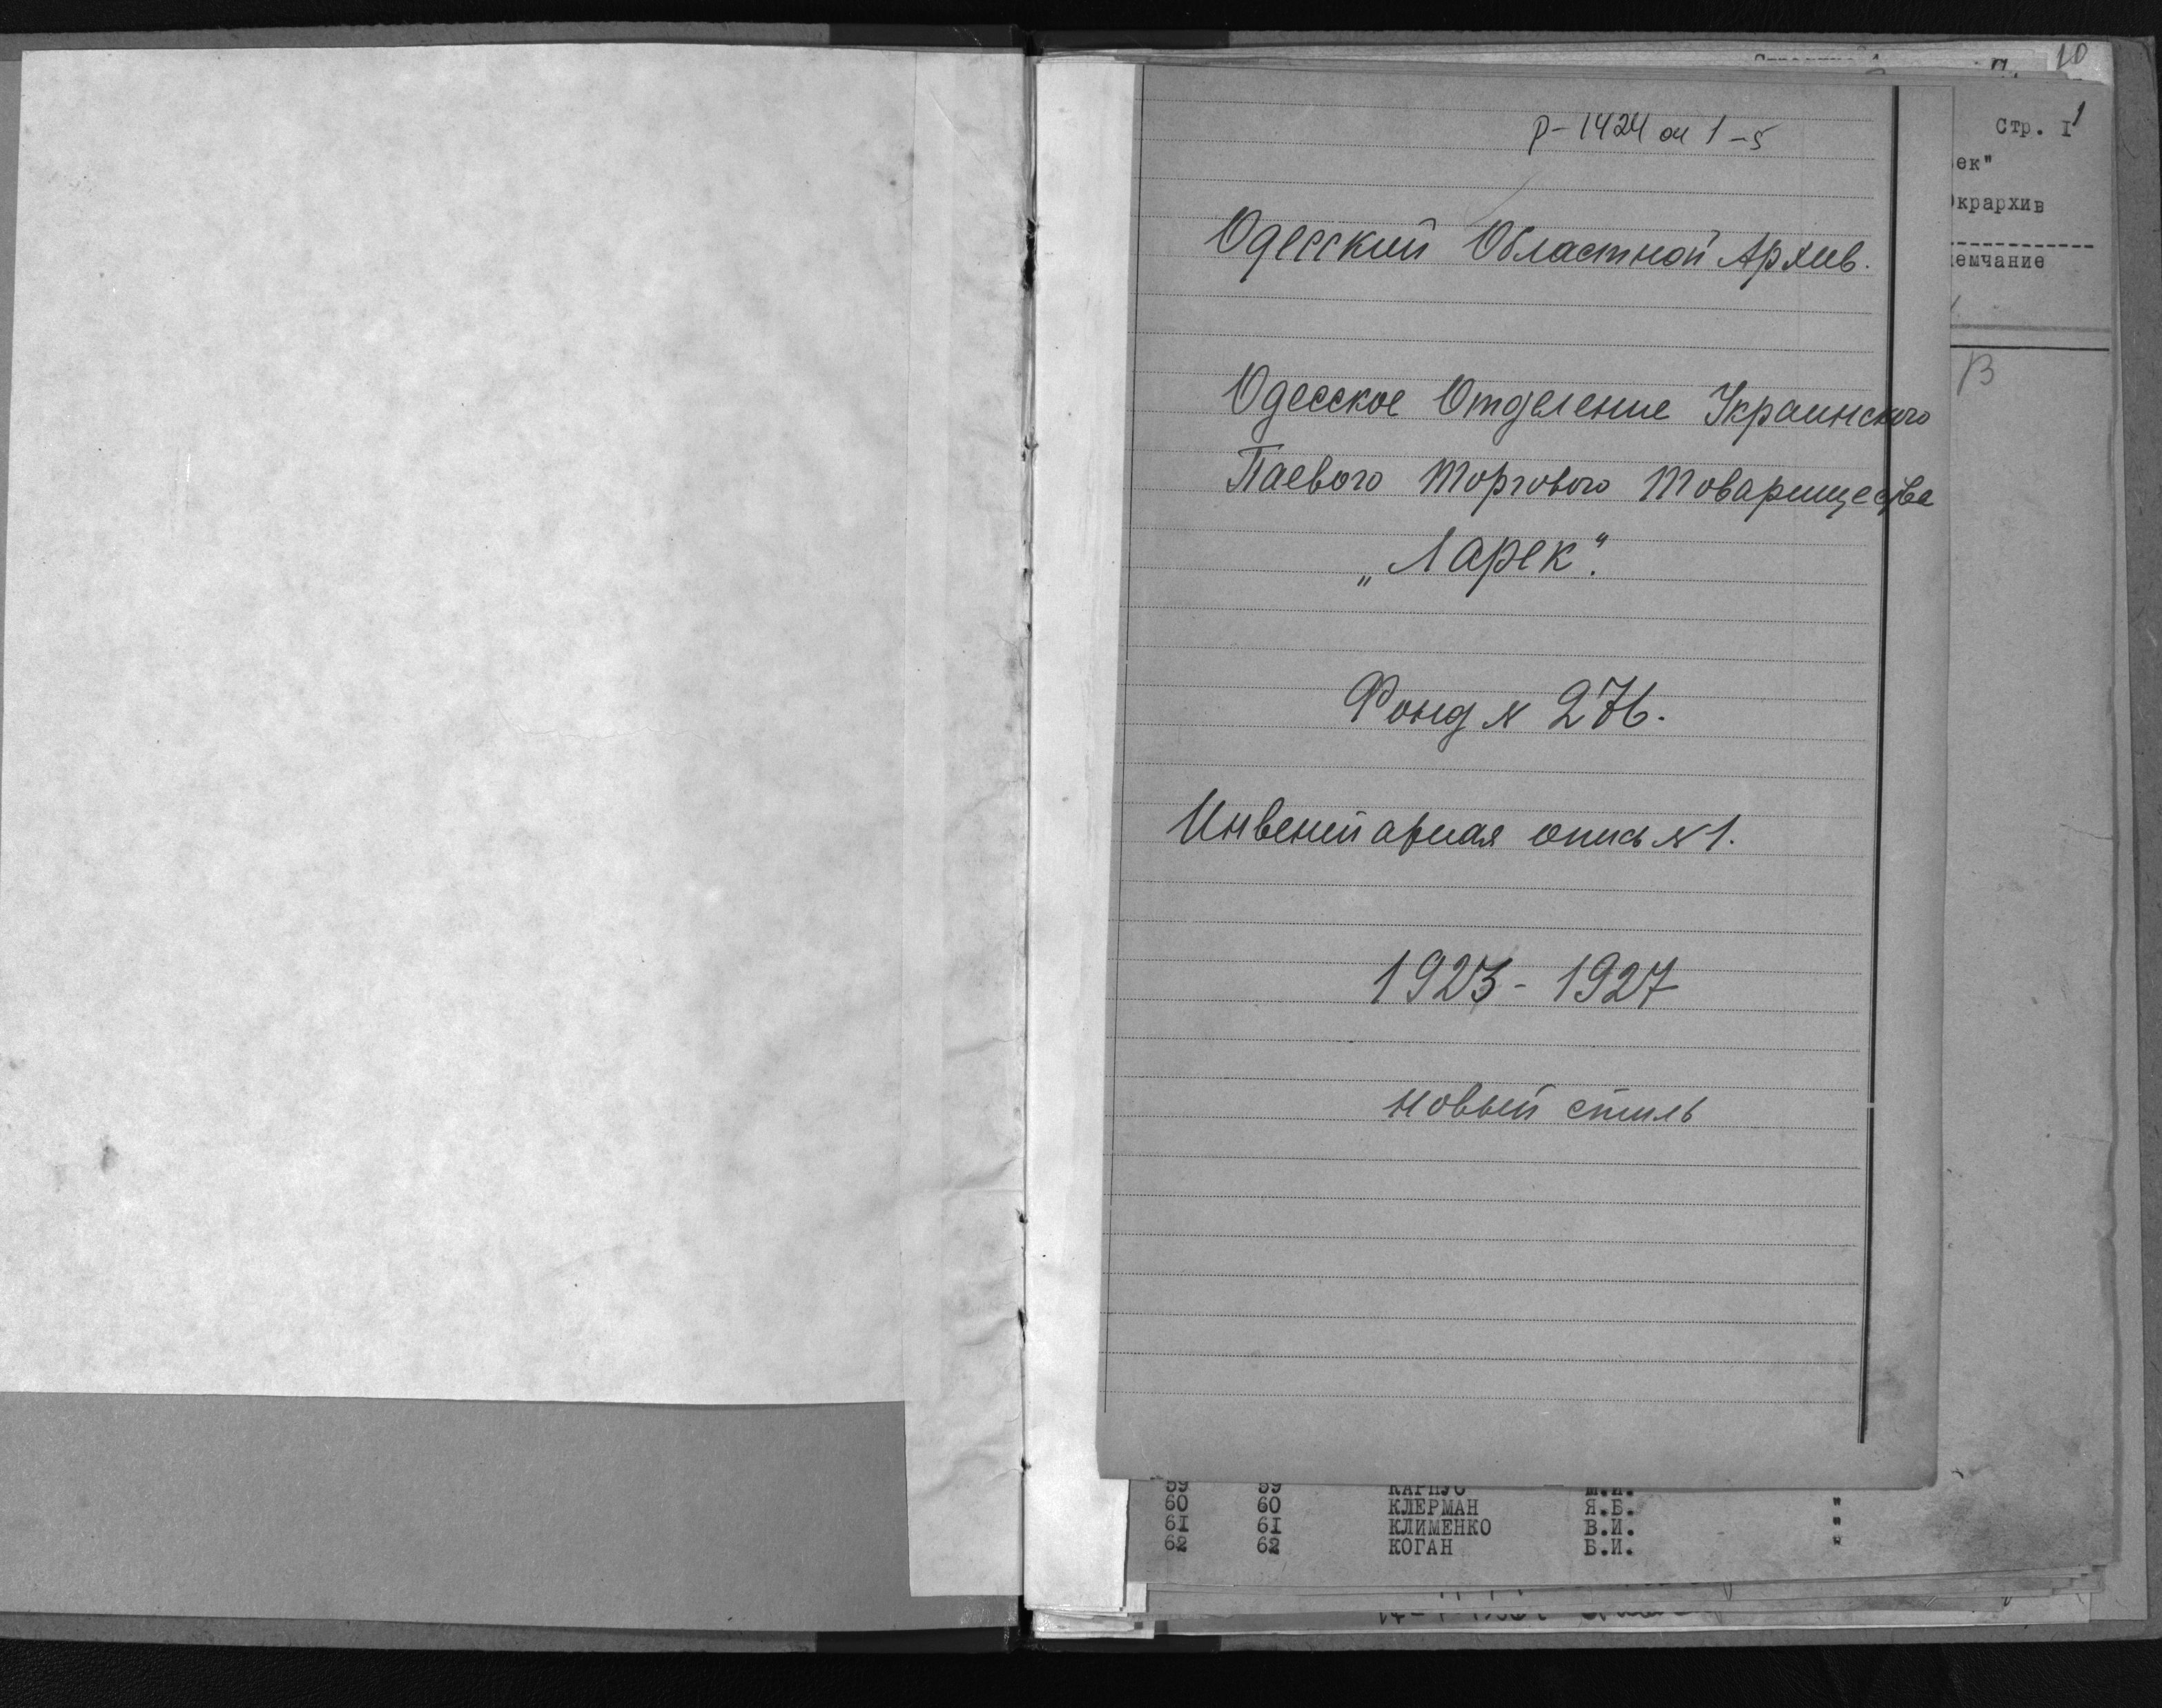 10
Стр. I 1
ек"
крархив
емчание
В
Р-1424 оп 1-5
Одесский Областной Архив.
Одесское Отделение Украинского
Паевого Торгового Товарищества
„Ларек".
Фонд N 276.
Инвентарная опись N1.
1923 - 1927
новый стиль
59 59 КАРПУС М.И.
60 60 КЛЕРМАН Я.Б. "
61 61 КЛИМЕНКО В.И. "
62 62 КОГАН Б.И. "